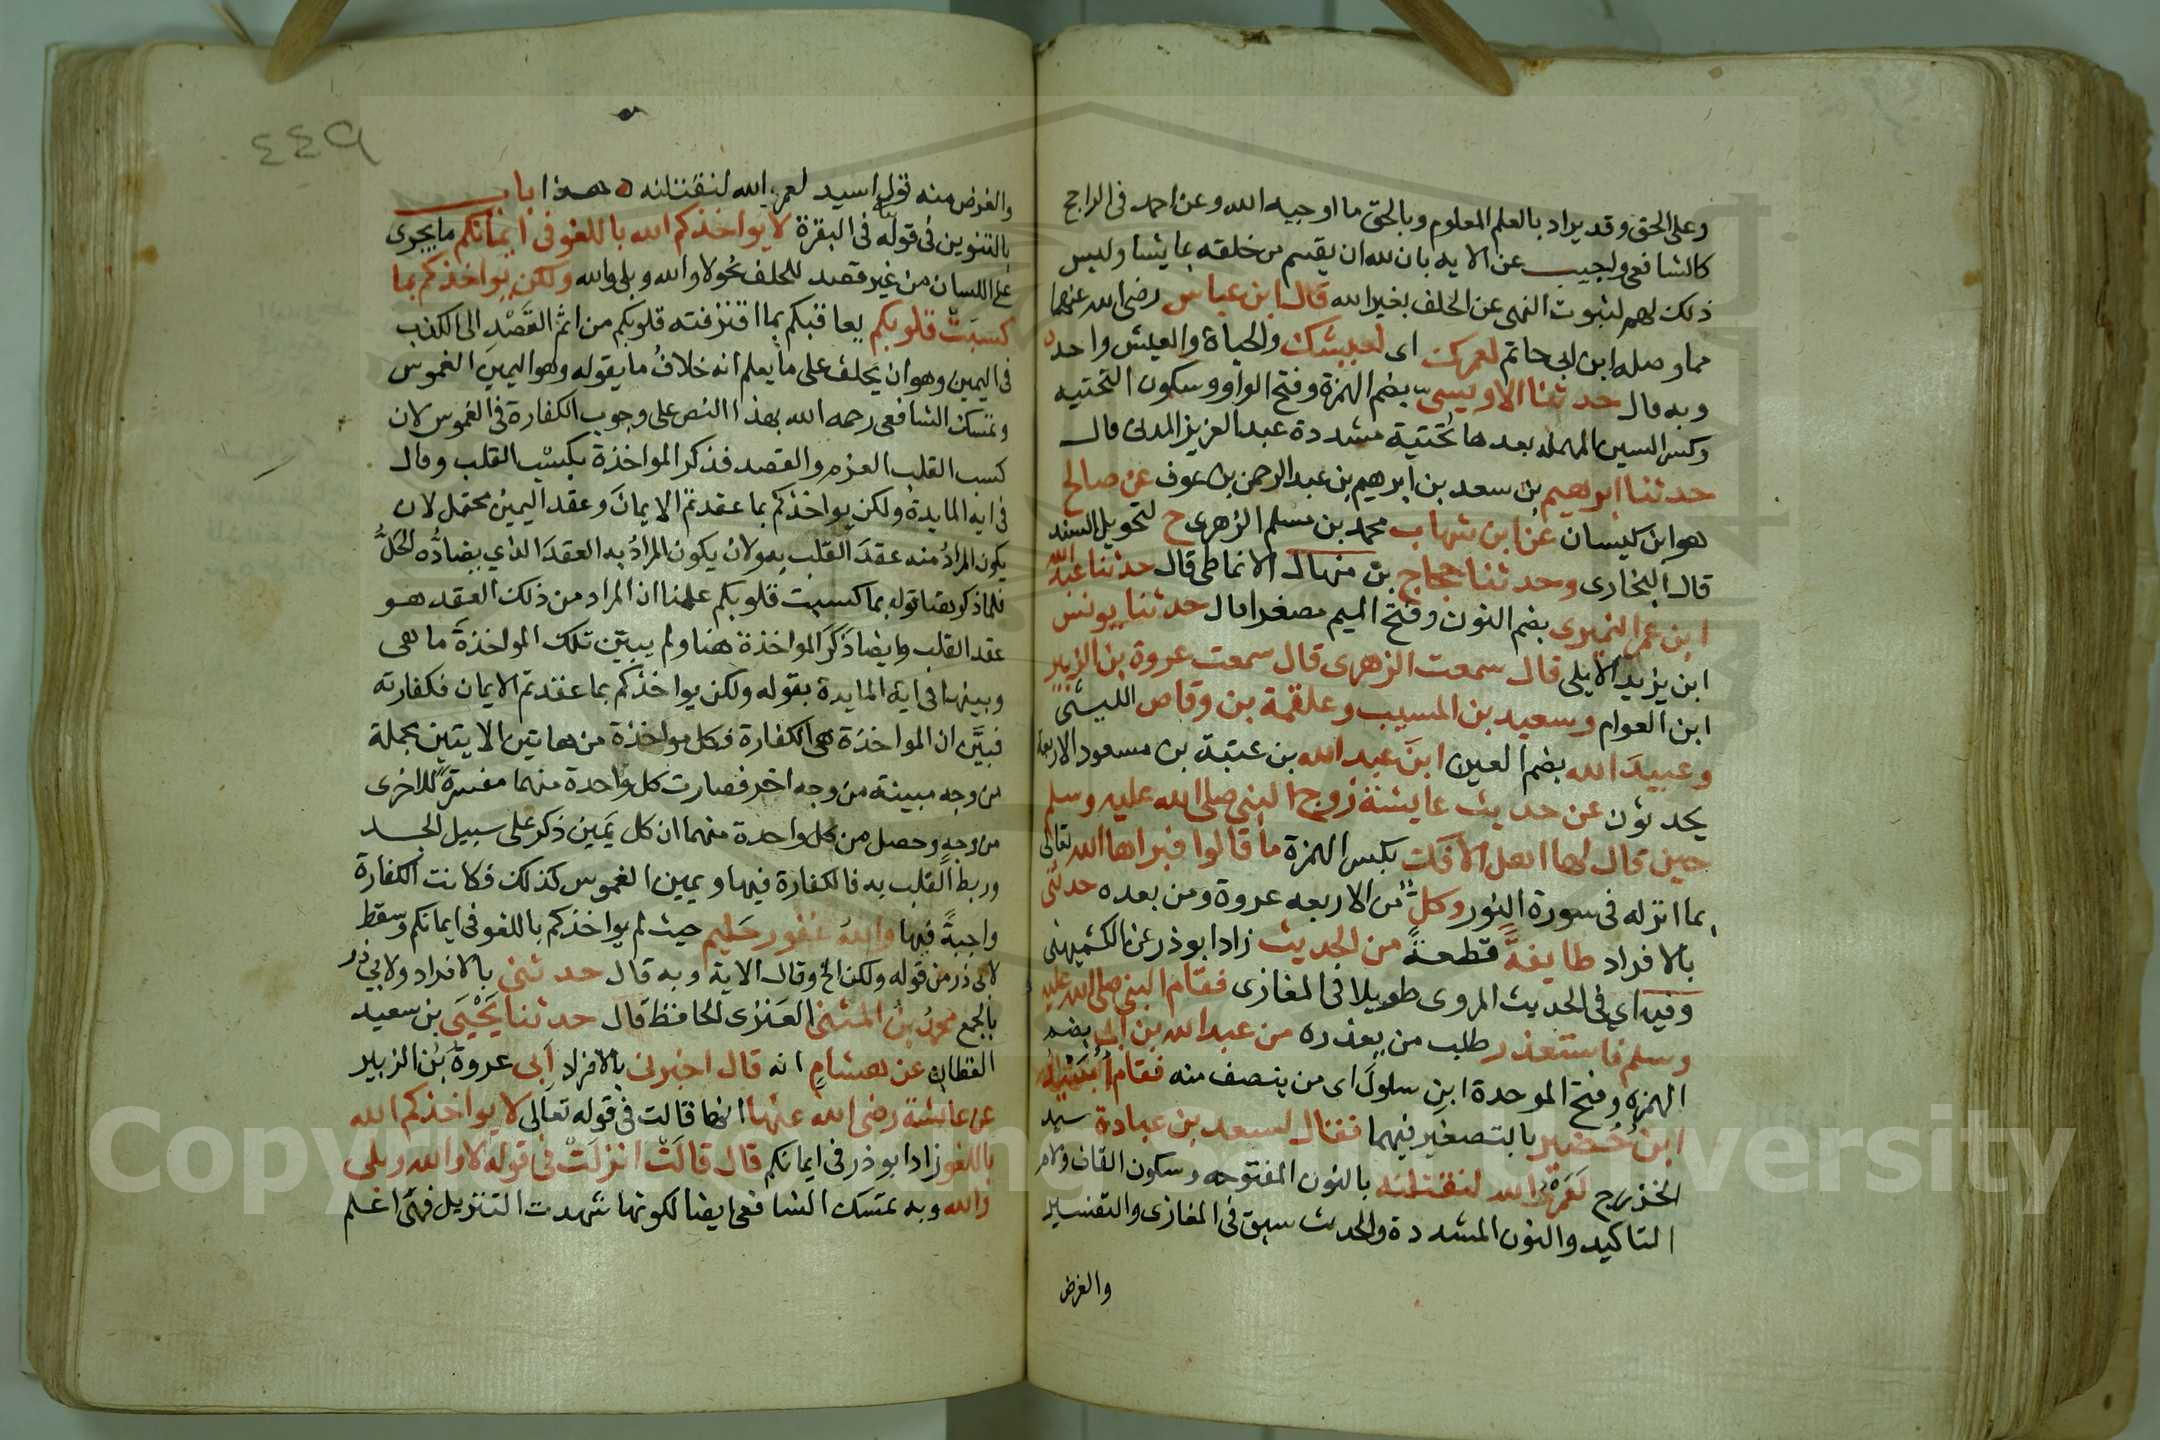 وعلى الحق وقد يراد بالعلم المعلوم وبالحق ما اوجبه الله وعن احمد فى الراجح
كالشافعى واجيب عن الايه بان لله ان يقسم من خلقه بما يشا وليس
ذلك لهم لثبوت النهى عن الحلف بغير الله قال ابن عباس رضى الله عنهما
مما وصله ابن ابى حاتم لعمرك اى لعيشك والحياة والعيش واحد
وبه قال حدثنا الاويسى بضم الهمزة وفتح الواو وسكون التحتيه
وكسر السين المهمله بعدها تحتية مشددة عبد العزيز المدنى قال
حدثنا ابرهيم بن سعد بن ابرهيم بن عبد الرحمن بن عوف عن صالح
هو ابن كيسان عن ابن شهاب محمد بن مسلم الزهرى ح لتحويل السند
قال البخارى وحدثنا حجاج بن منهال الانماطى قال حدثنا عبد الله
ابن عمر النميرى بضم النون وفتح الميم مصغرا قال حدثنا يونس
ابن يزيد الايلى قال سمعت الزهرى قال سمعت عروة بن الزبير
ابن العوام وسعيد بن المسيب وعلقمة بن وقاص الليثى
وعبيد الله بضم العين ابن عبد الله بن عتبة بن مسعود الاربعة
يحدثون عن حديث عايشة زوج النبى صلى الله عليه وسلم
حين قال لها اهل الافك بكسر الهمزة ما قالوا فبراها الله تعالى
بما انزله فى سورة النور وكل من الاربعه عروة ومن بعده حدثنى
بالافراد طايفة قطعة من الحديث زاد ابو ذر عن الكشميهنى
وفيه اي فى الحديث المروى طويلا فى المغازى فقام النبى صلى الله عليه
وسلم فاستعذر طلب من يعذره من عبد الله بن ابى بضم
الهمزه وفتح الموحدة ابن سلول اى من ينصف منه فقام اسيد
ابن حضير بالتصغير فيهما فقال لسعد بن عبادة سيد
الخزرج لعمر الله لنقتلنه بالنون المفتوحه وسكون القاف ولام
التاكيد والنون المشددة والحديث سبق فى المغازى والتفسير
والغرض
٤٤٩
والغرض منه قول اسيد لعمر الله لنقتلنه ه هذا باب
بالتنوين فى قوله فى البقرة لا يواخذكم الله باللغو فى ايمانكم ما يجرى
على اللسان من غير قصد للحلف نحو لا والله وبلى والله ولكن يواخذكم بما
كسبت قلوبكم يعاقبكم بما اقترفته قلوبكم من اثم القصد الى الكذب
فى اليمين وهو ان يحلف على ما يعلم انه خلاف ما يقوله وهو اليمين الغموس
وتمسك الشافعى رحمه الله بهذا النص على وجوب الكفارة فى الغموس لان
كسب القلب العزم والقصد فذكر المواخذة بكسب القلب وقال
فى اية المايدة ولكن يواخذكم بما عقدتم الايمان وعقد اليمين محتمل لان
يكون المراد منه عقد القلب به ولان يكون المراد به العقد الذي يضاده الحل
فلما ذكر هنا قوله بما كسبت قلوبكم علمنا ان المراد من ذلك العقد هو
عقد القلب وايضا ذكر المواخذة هنا ولم يبين تلك المواخذة ما هى
وبينها فى اية المايدة بقوله ولكن يواخذكم بما عقدتم الايمان فكفارته
فبين ان المواخذة هى الكفارة فكل مواخذة من هاتين الايتين مجملة
من وجه مبينة من وجه اخر فصارت كل واحدة منهما مفسرة للاخرى
من وجه وحصل من كل واحدة منهما ان كل يمين ذكر على سبيل الجد
وربط القلب به فالكفارة فيها ويمين الغموس كذلك فكانت الكفارة
واجبة فيها والله غفور حليم حيث لم يواخذكم باللغو فى ايمانكم وسقط
لابى ذر من قوله ولكن الخ وقال الاية وبه قال حدثنى بالافراد ولابي ذر
بالجمع محمد بن المثنى العنزى الحافظ قال حدثنا يحيى بن سعيد
القطان عن هشام انه قال اخبرنى بالافراد ابى عروة بن الزبير
عن عايشة رضى الله عنها انها قالت فى قوله تعالى لا يواخذكم الله
باللغو زاد ابو ذر فى ايمانكم قال قالت انزلت فى قوله لا والله وبلى
والله وبه تمسك الشافعى ايضا لكونها شهدت التنزيل فهى اعلم
Copyright © King Saud University